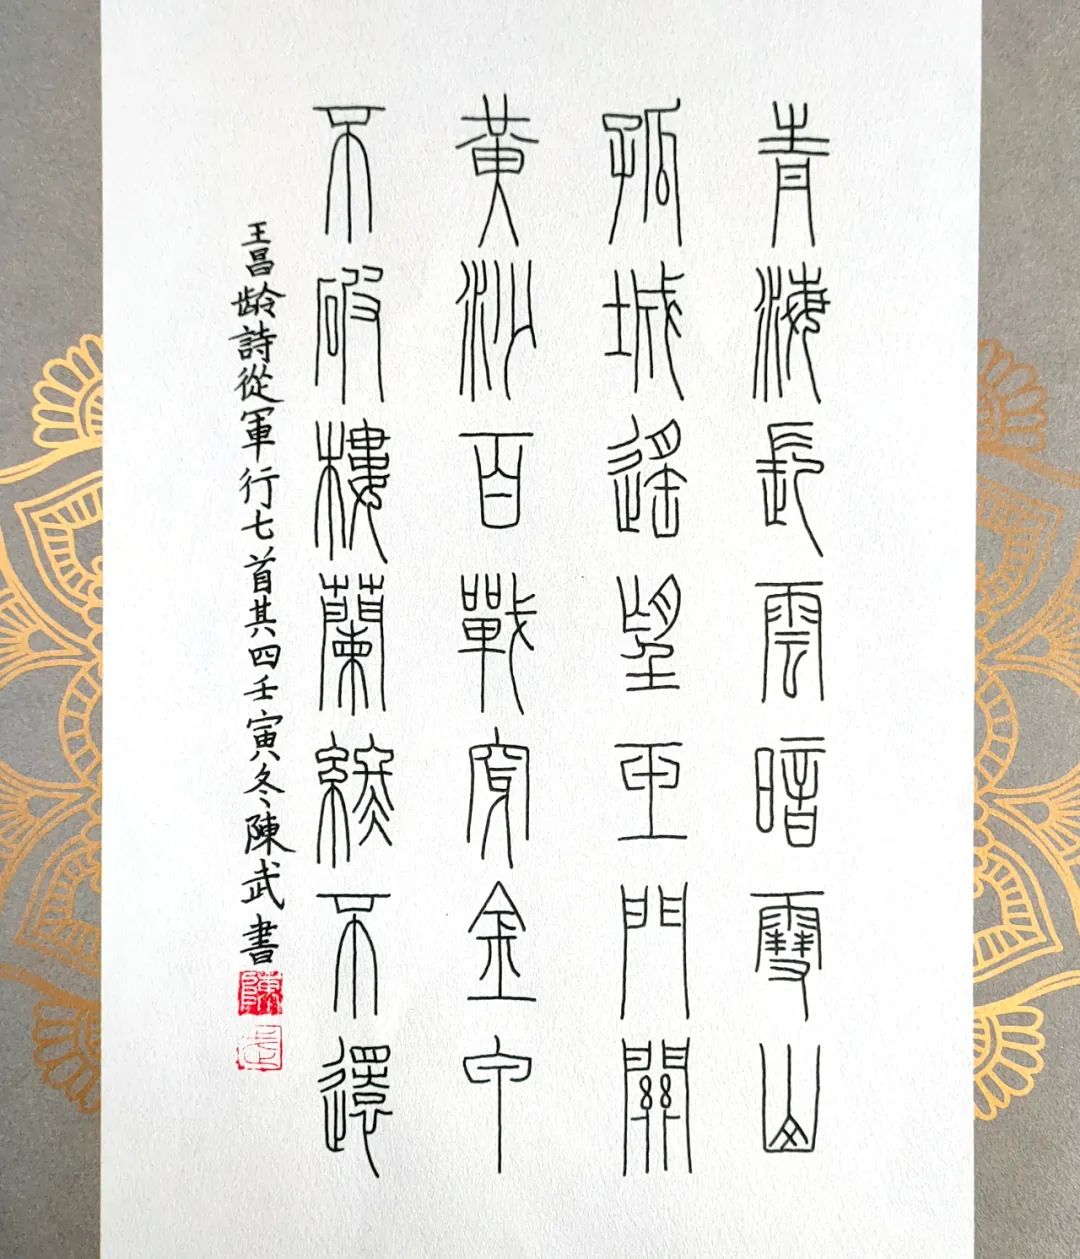 青海長雲暗雪山
孤城遙望玉門關
黃沙百戰穿金甲
不破樓蘭終不還
王昌龄詩從軍行七首其四壬寅冬陳武書
陳
武